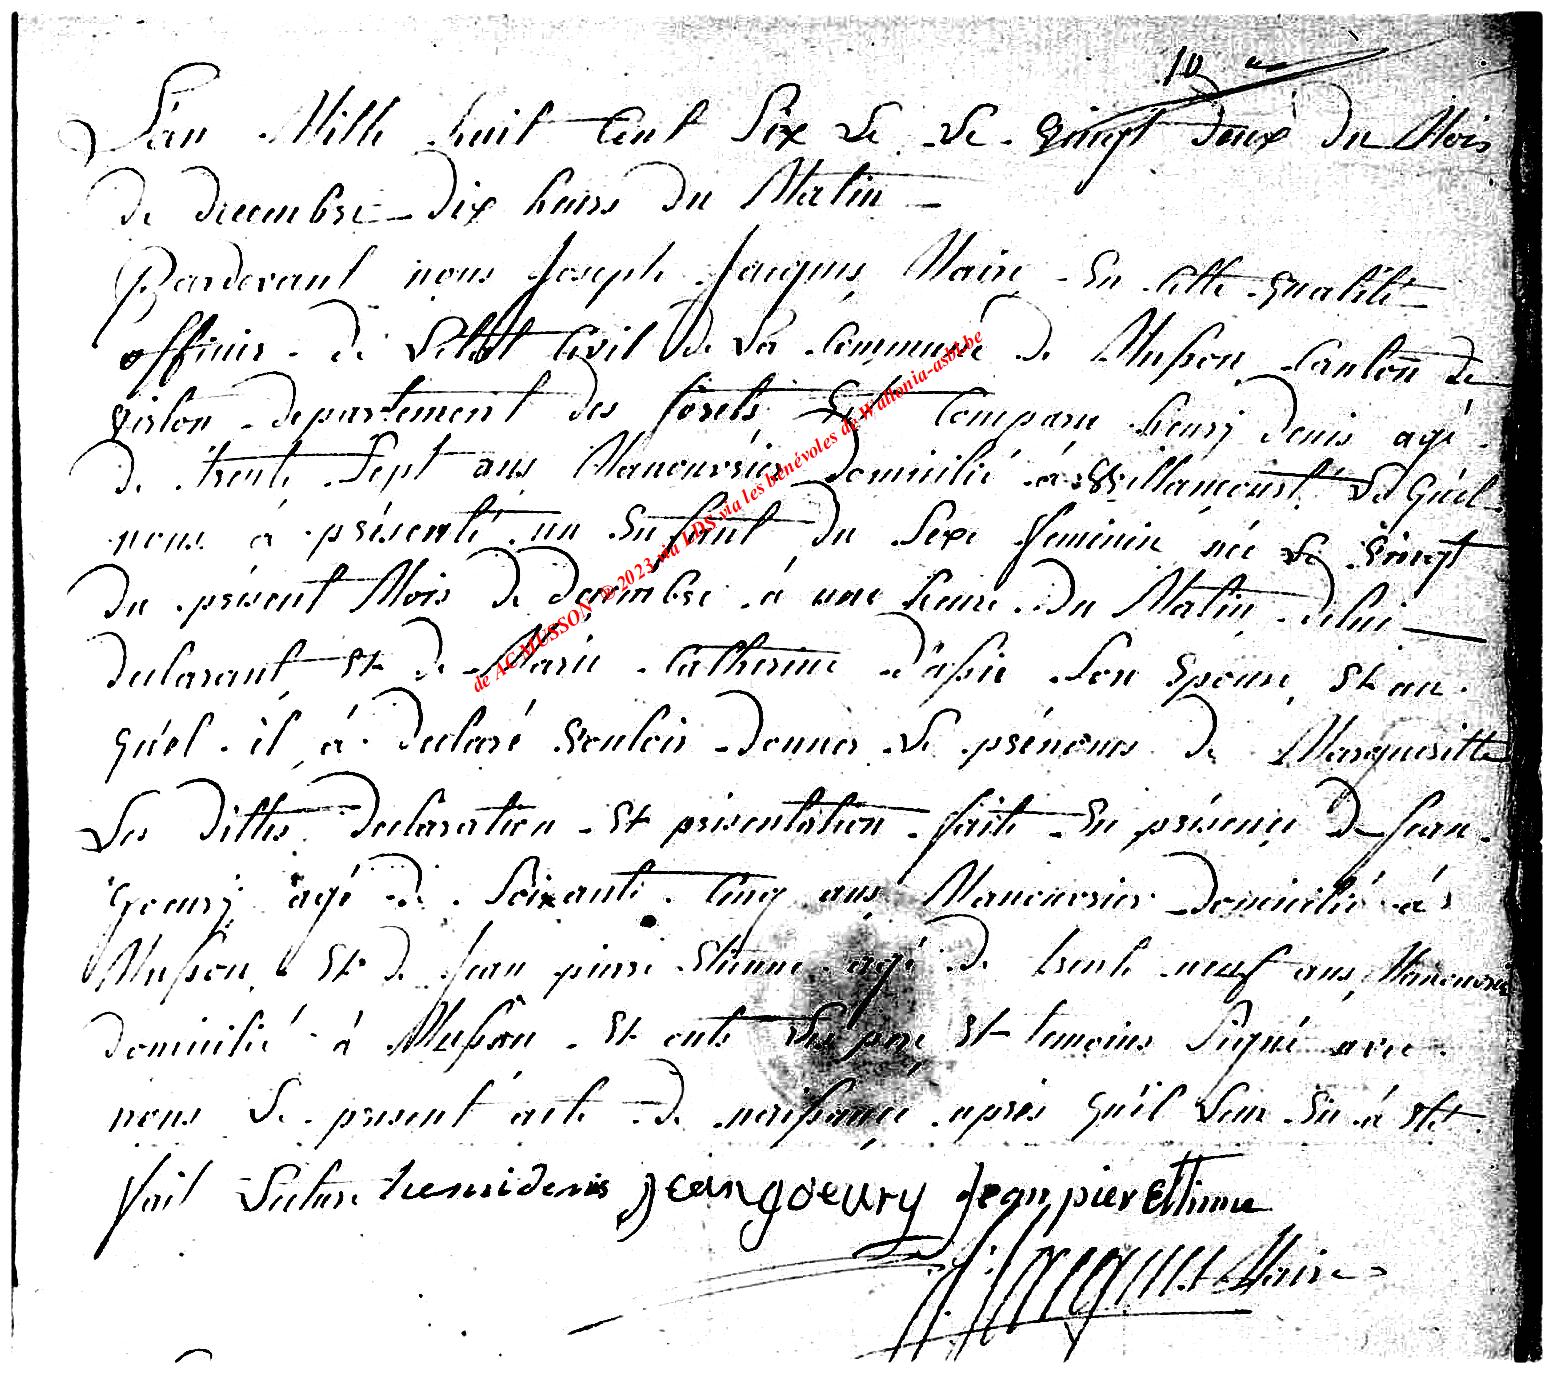 10
L'an Mille huit Cent Six Le Le vingt deux du Mois
de decembre dix heures du Matin
Pardevant nous Joseph Jacques Maire En Cette qualité
officier de L'état Civil De La Commune de Musson Canton de
virton departement des forêts Est Comparu henry denis agé
de trente Sept ans Manouvrier domicilié à Willancourt Le quel
nous à présenté un Enfant du Sexe feminin née Le vingt
du présent Mois de decembre à une heure du Matin delui
declarant Et de Marie Catherine Son Epouse, Et au
quel il à declaré vouloir donner Le prénoms de Margueritte
Les dittes declaration Et présentation faite En présence de Jean
Goeury agé de Soixante Cinq ans Manouvrier domicilié à
Musson Et de Jean pierre Etienne agé de trente neuf ans, Manouvrier
domicilié à Musson Et onts Les pere Et temoins Signé avec
nous Le present acte de naissance après qu'il Leur En à Eté
fait Lecture henridenis jeangoeury Jean pier Ettienne
J: Jacques Maire
de AC MUSSON © 2023 via LDS via les bénévoles de Wallonia-asbl.be